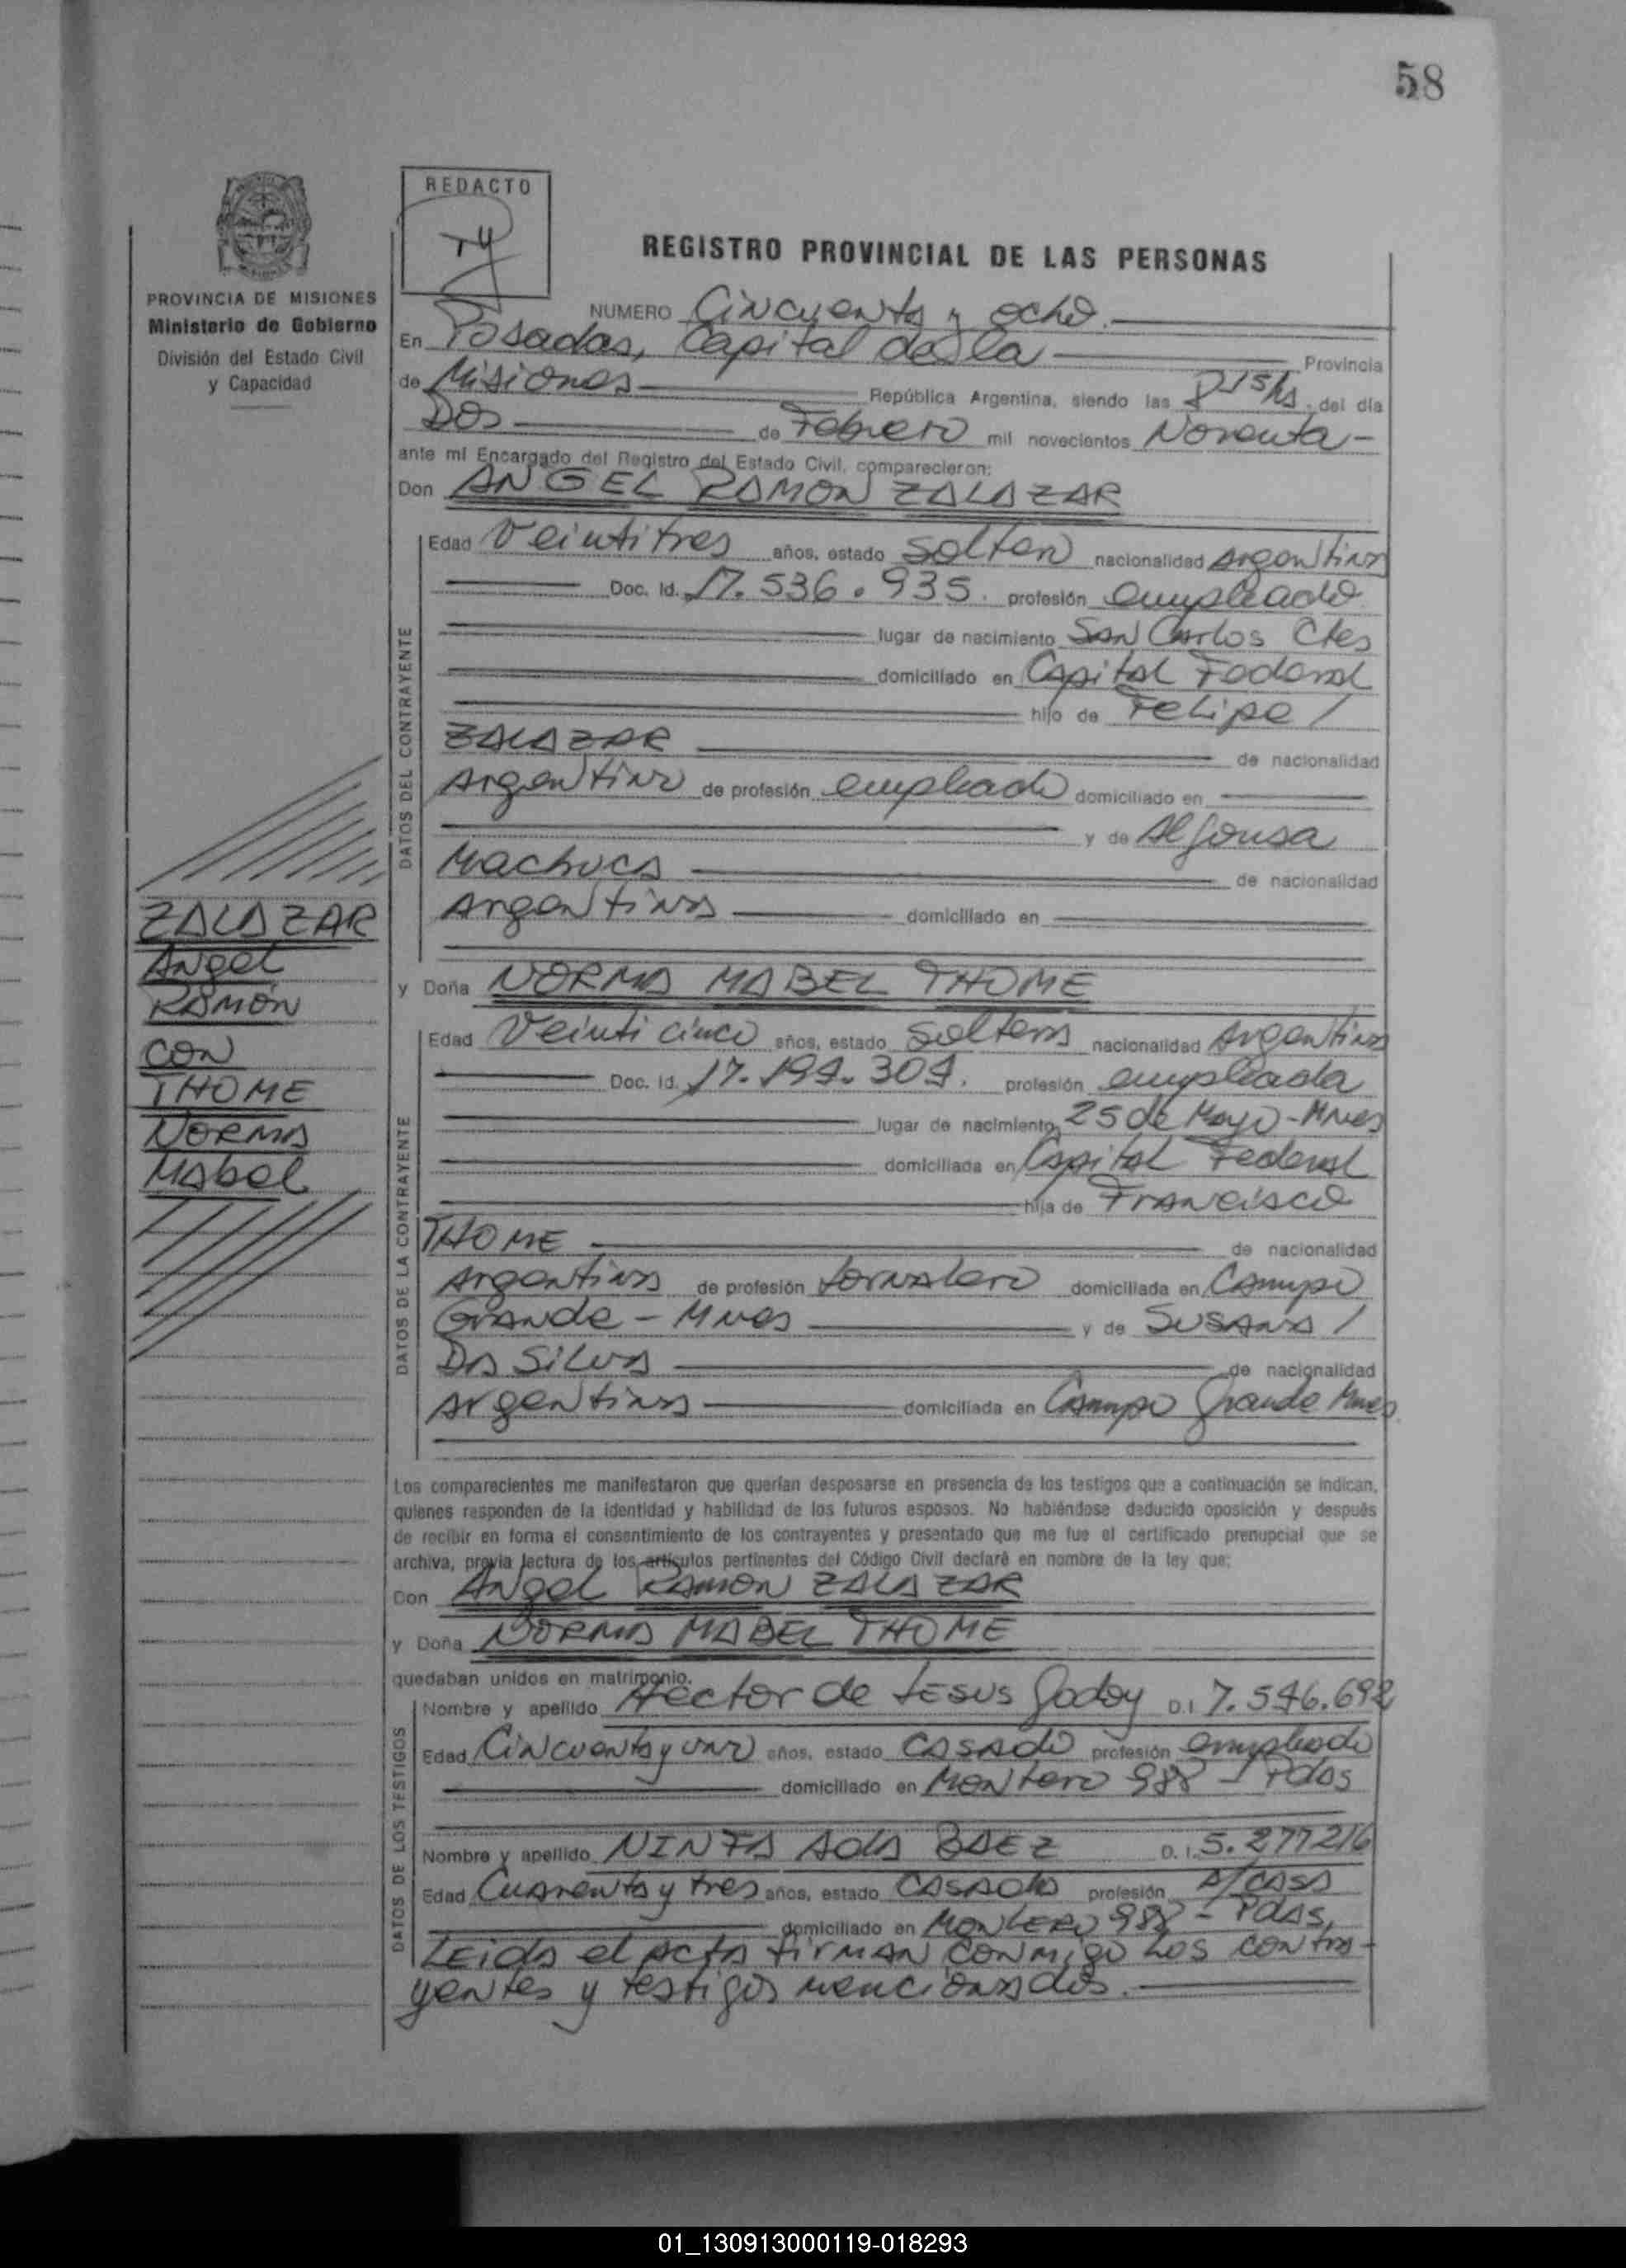 58
REDACTO
REGISTRO PROVINCIAL DE LAS PERSONAS
PROVINCIA DE MISIONES
Ministerio de Gobierno
División del Estado Civil
y Capacidad
NUMERO Cincuenta y ocho.
En Posadas, Capital de la Provincia
de Misiones República Argentina, siendo las 8 15 hs. del día
Dos de Febrero mil novecientos Noventa -
ante mí Encargado del Registro del Estado Civil, comparecieron:
Don ANGEL RAMON ZALAZAR
DATOS DEL CONTRAYENTE
Edad Veintitres años, estado Soltero nacionalidad Argentina
Doc. Id. 17.536.935. profesión empleado
lugar de nacimiento San Carlos Ctes
domiciliado en Capital Federal
hijo de Felipe /
ZALAZAR de nacionalidad
Argentino de profesión empleado domiciliado en
y de Alfonsa
Machuca de nacionalidad
Argentina domiciliado en
y Doña NORMA MABEL THOME
DATOS DE LA CONTRAYENTE
Edad Veinticinco años, estado Soltera nacionalidad Argentina
Doc. Id. profesión empleada
lugar de nacimiento 25 de Mayo - Mnes
domiciliada en Capital Federal
hija de Francisco
THOME de nacionalidad
Argentina de profesión Jornalero domiciliada en Campo
Grande - Mnes y de Susana /
Da Silva de nacionalidad
Argentina domiciliada en Campo Grande Mnes
ZALAZAR
Angel
RAMON
CON
THOME
NORMA
Mabel
Los comparecientes me manifestaron que querían desposarse en presencia de los testigos que a continuación se indican,
quienes responden de la identidad y habilidad de los futuros esposos. No habiéndose deducido oposición y después
de recibir en forma el consentimiento de los contrayentes y presentado que me fue el certificado prenupcial que se
archiva, previa lectura de los artículos pertinentes del Código Civil declaré en nombre de la ley que:
Don Angel RAMON ZALAZAR
y Doña NORMA MABEL THOME
quedaban unidos en matrimonio.
DATOS DE LOS TESTIGOS
Nombre y apellido Hector de Jesus Godoy D.I 7.546.692
Edad Cincuenta y uno años, estado Casado profesión empleado
domiciliado en Montero 988 - Pdas
Nombre y apellido NINFA Ada BAEZ D.I. 5.277216
Edad Cuarenta y tres años, estado Casada profesión A/CASA
domiciliado en Montero 988 - Pdas,
Leida el acta firman conmigo los contra-
yentes y testigos mencionados.
01_130913000119-018293